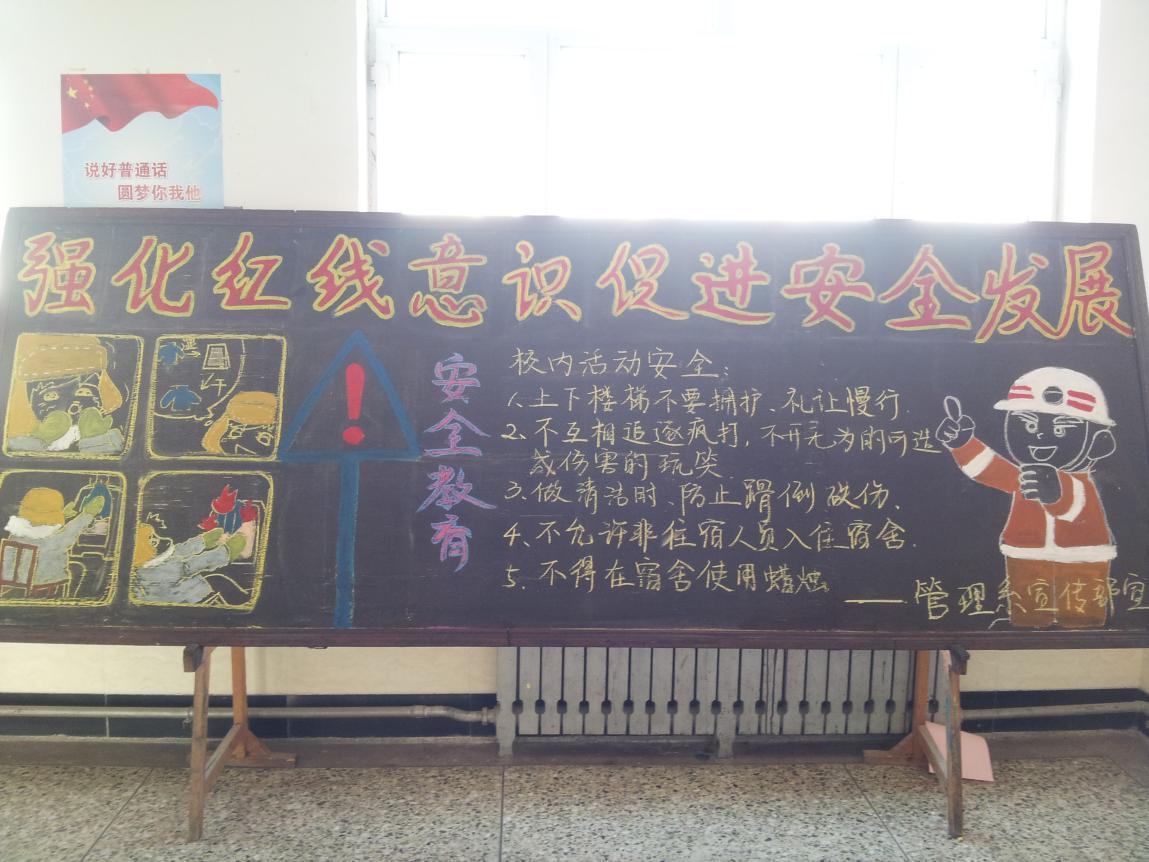 说好普通话
圆梦你我他
强化红线意识促进安全发展
安全教育
校内活动安全:
1、上下楼梯不要拥护、礼让慢行.
2、不互相追逐疯打,不开无为的可造
成伤害的玩笑
3、做清洁时、防止滑倒砍伤.
4、不允许非住宿人员入住宿舍.
5、不得在宿舍使用蜡烛
——管理系宣传部宣